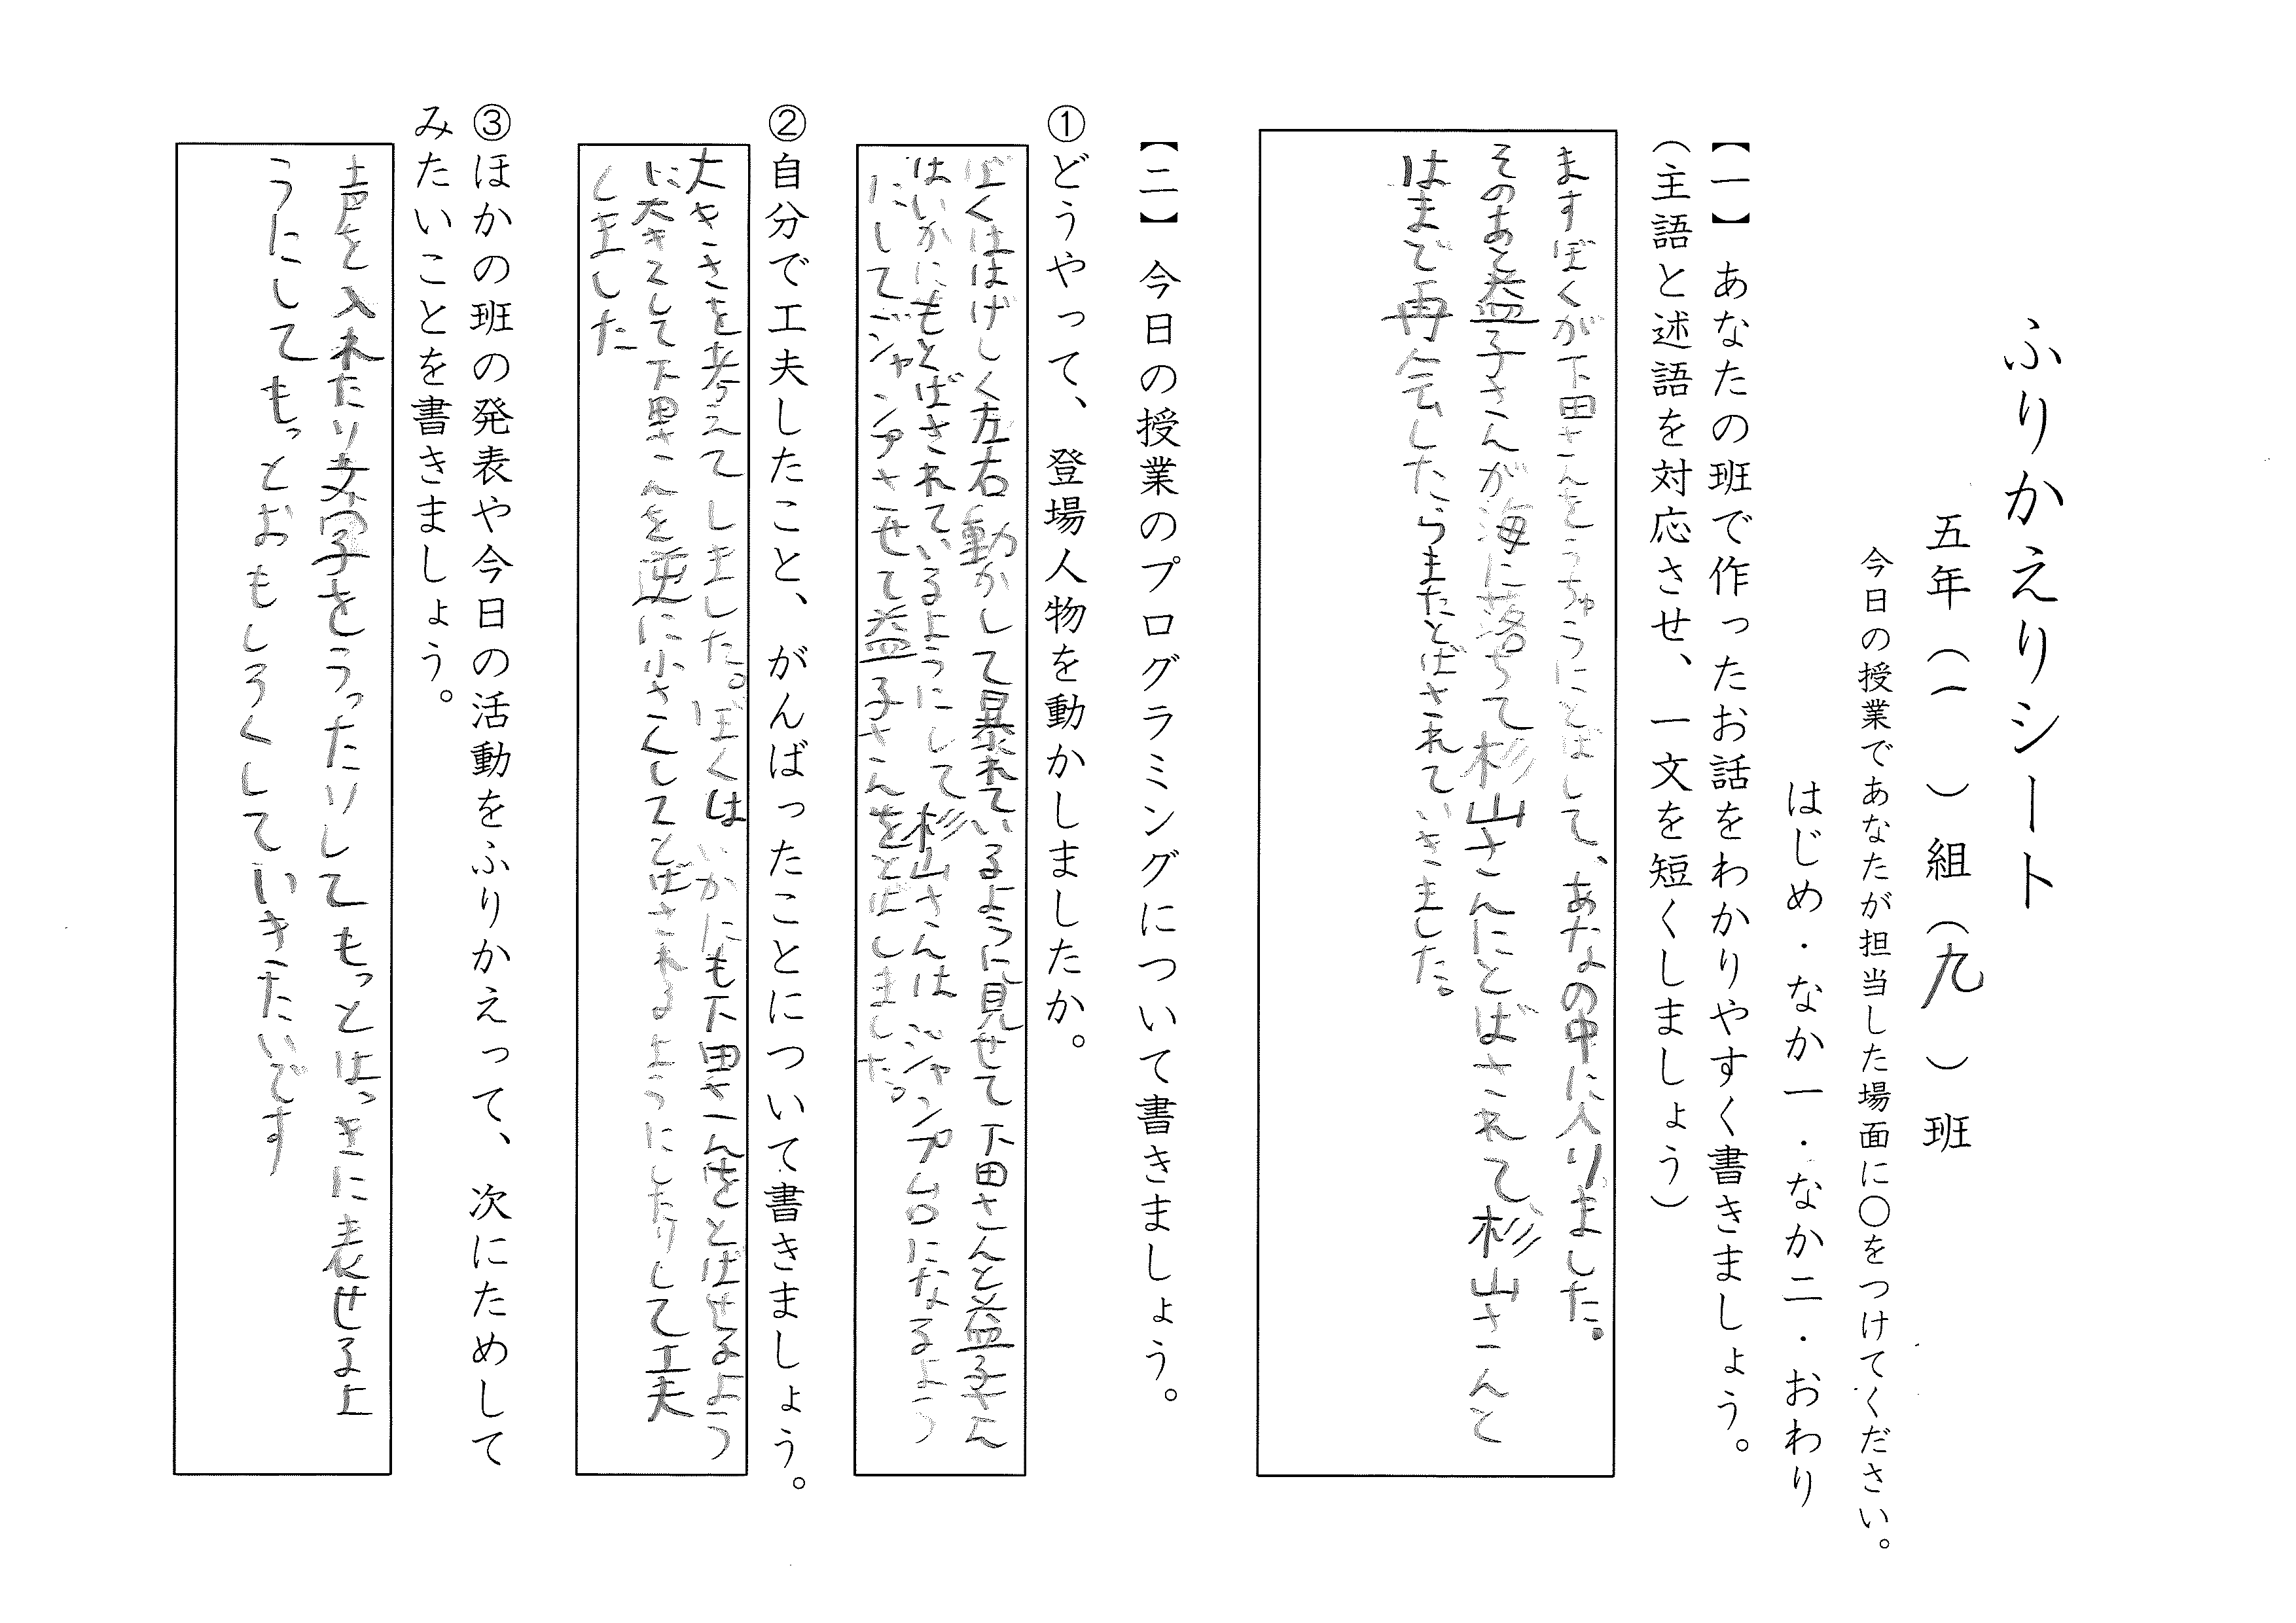 ふりかえりシート
五年（一　）組（九　）班
今日の授業であなたが担当した場面に〇をつけてください。
はじめ・なか一・なか二・おわり
【一】あなたの班で作ったお話をわかりやすく書きましょう。
（主語と述語を対応させ、一文を短くしましょう）
ますぼくが下田さんをうちゅうにとばして、あなの中に入りました。
そのあと益子さんが海に落ちて杉山さんにとばされて、杉山さんと
はまで再会したらまたとばされていきました。
【二】今日の授業のプログラミングについて書きましょう。
①どうやって、登場人物を動かしましたか。
ぼくははげしく左右動かして暴れているように見せて下田さんと益子さん
はいかにもとばされているようにして杉山さんはジャンプ台になるよう
にしてジャンプさせて益子さんをとばしました。
②自分で工夫したこと、がんばったことについて書きましょう。
大きさを考えてしました。ぼくはいかにも下田さんをとばせるよう
に大きくして下田さんを逆に小さくしてとばされるようにしたりして工夫
しました
③ほかの班の発表や今日の活動をふりかえって、次にためして
みたいことを書きましょう。
声を入れたり文字をうったりしてもっとはっきに表せるよ
うにしてもっとおもしろくしていきたいです